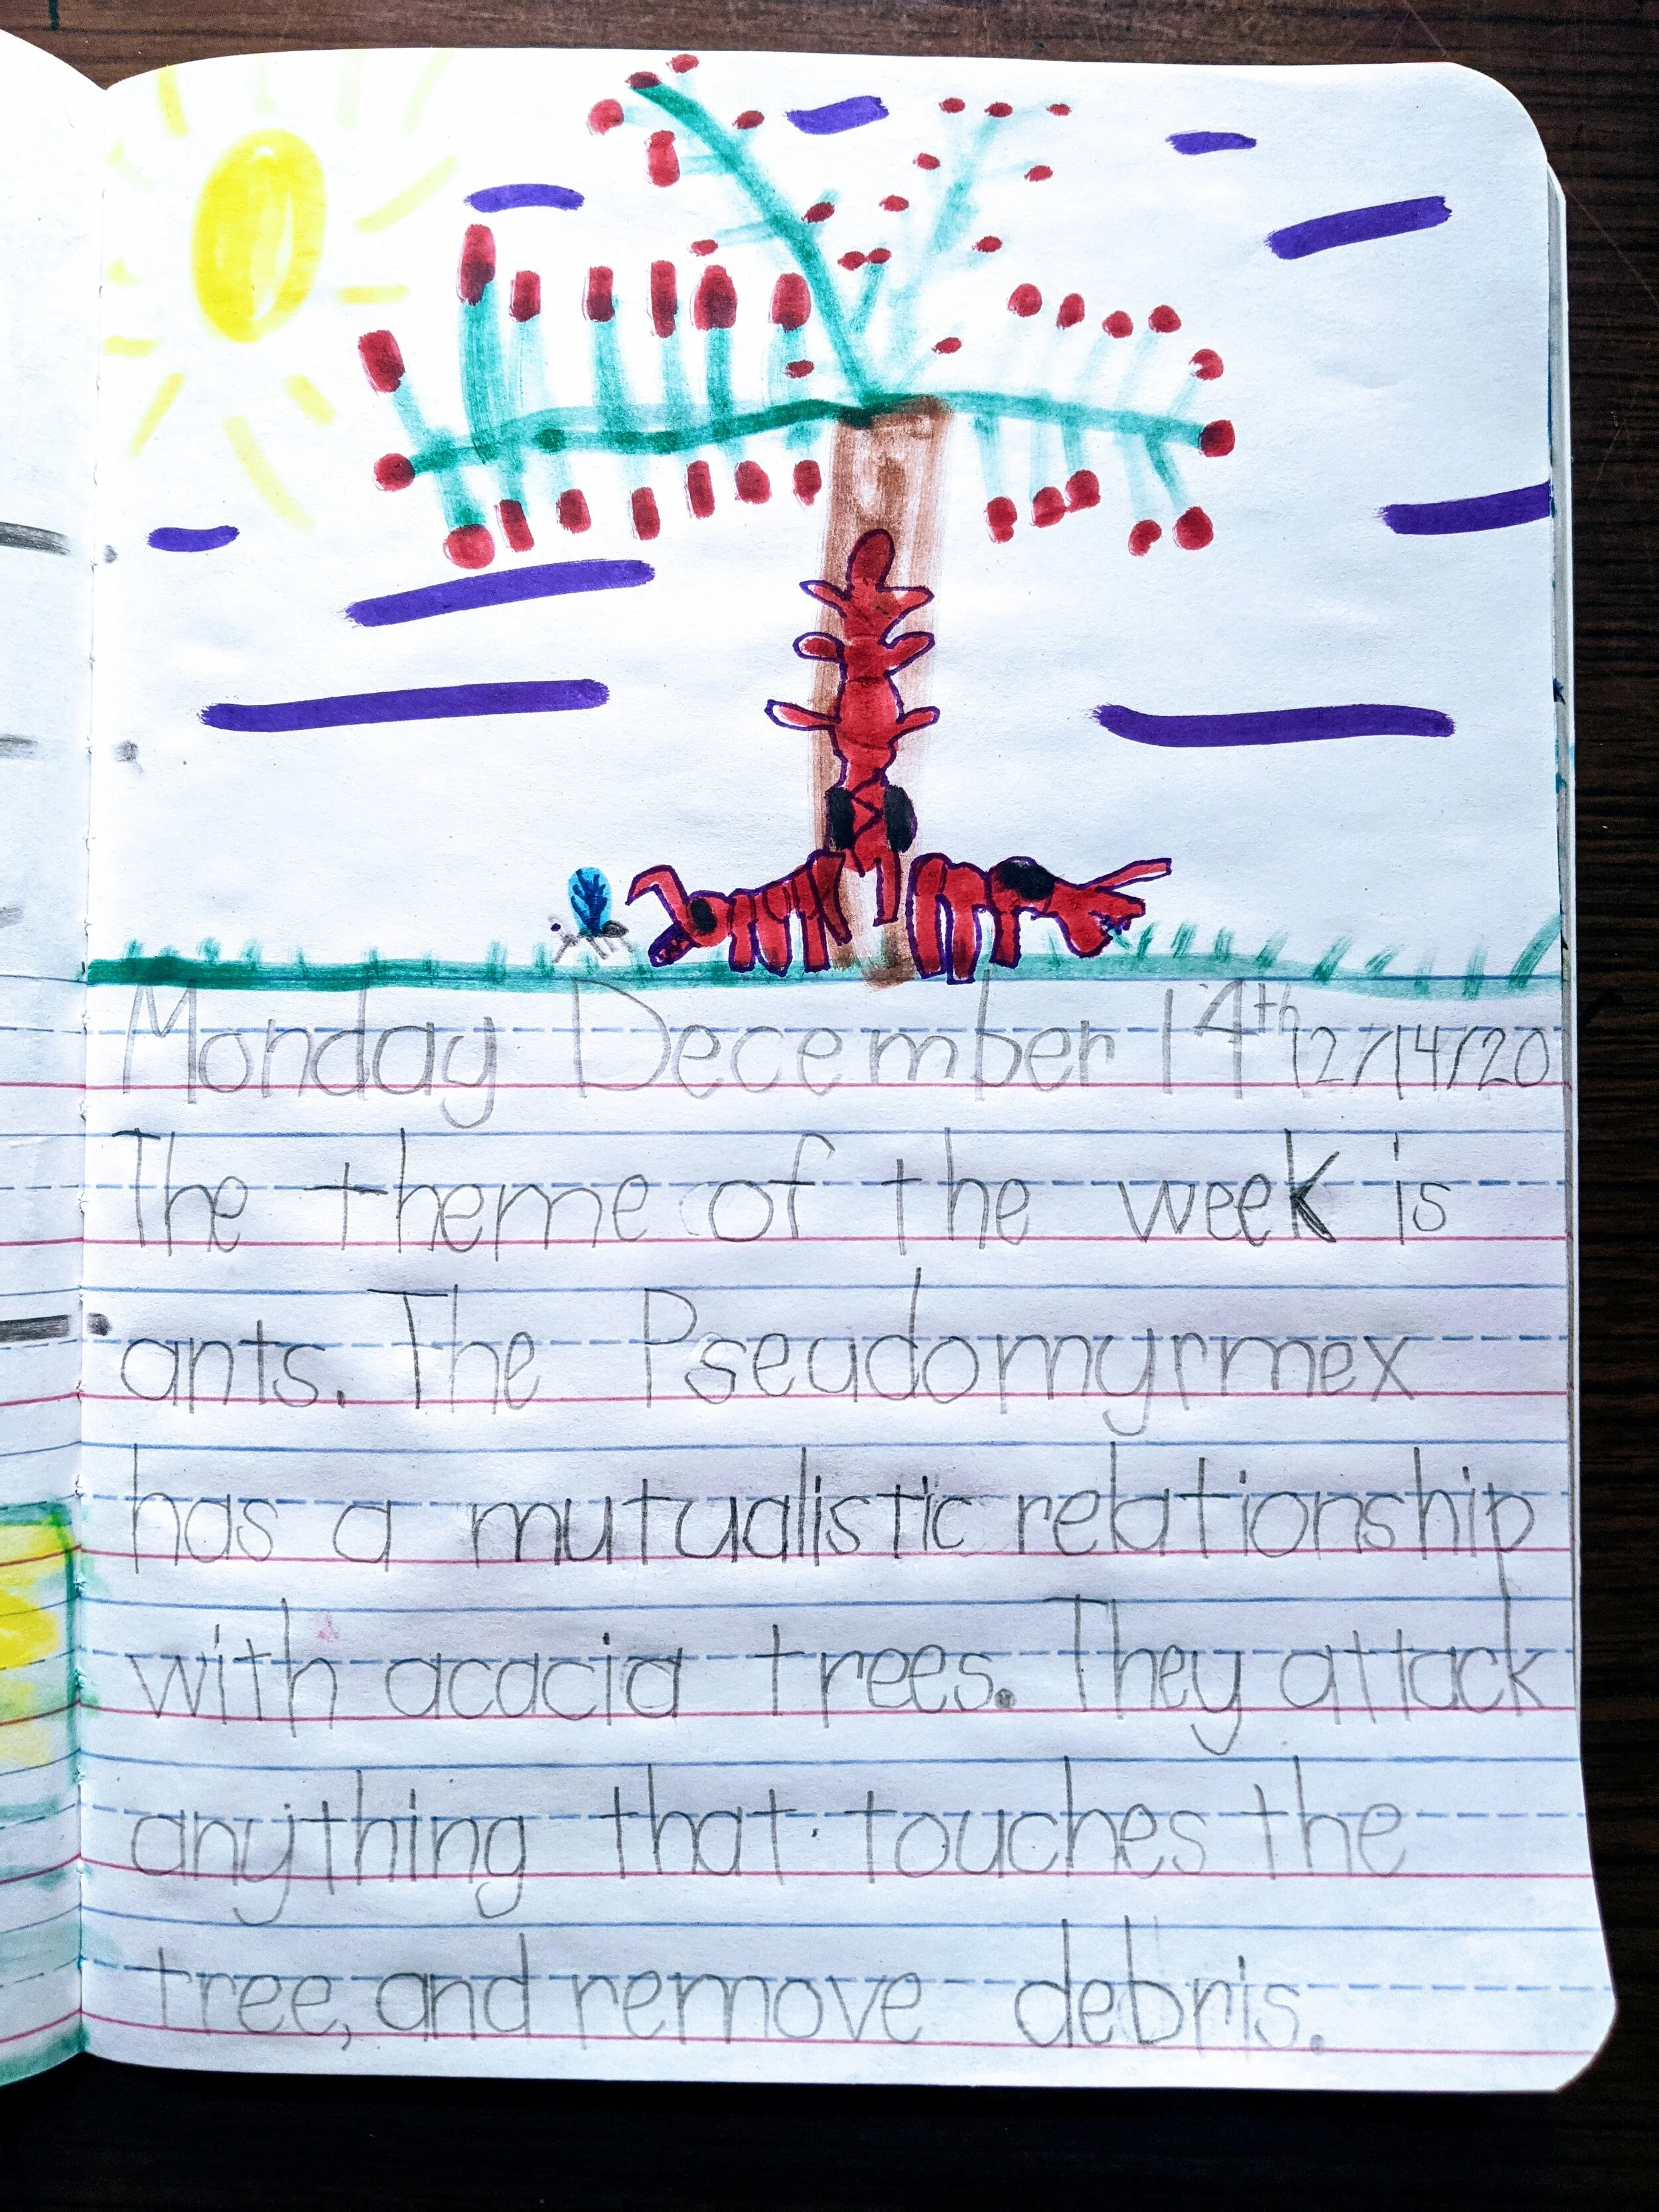 Monday December 14th 12/14/20
The theme of the week is
ants. The Pseudomyrmex
has a mutualistic relationship
with acacia trees. They attack
anything that touches the
tree, and remove debris.